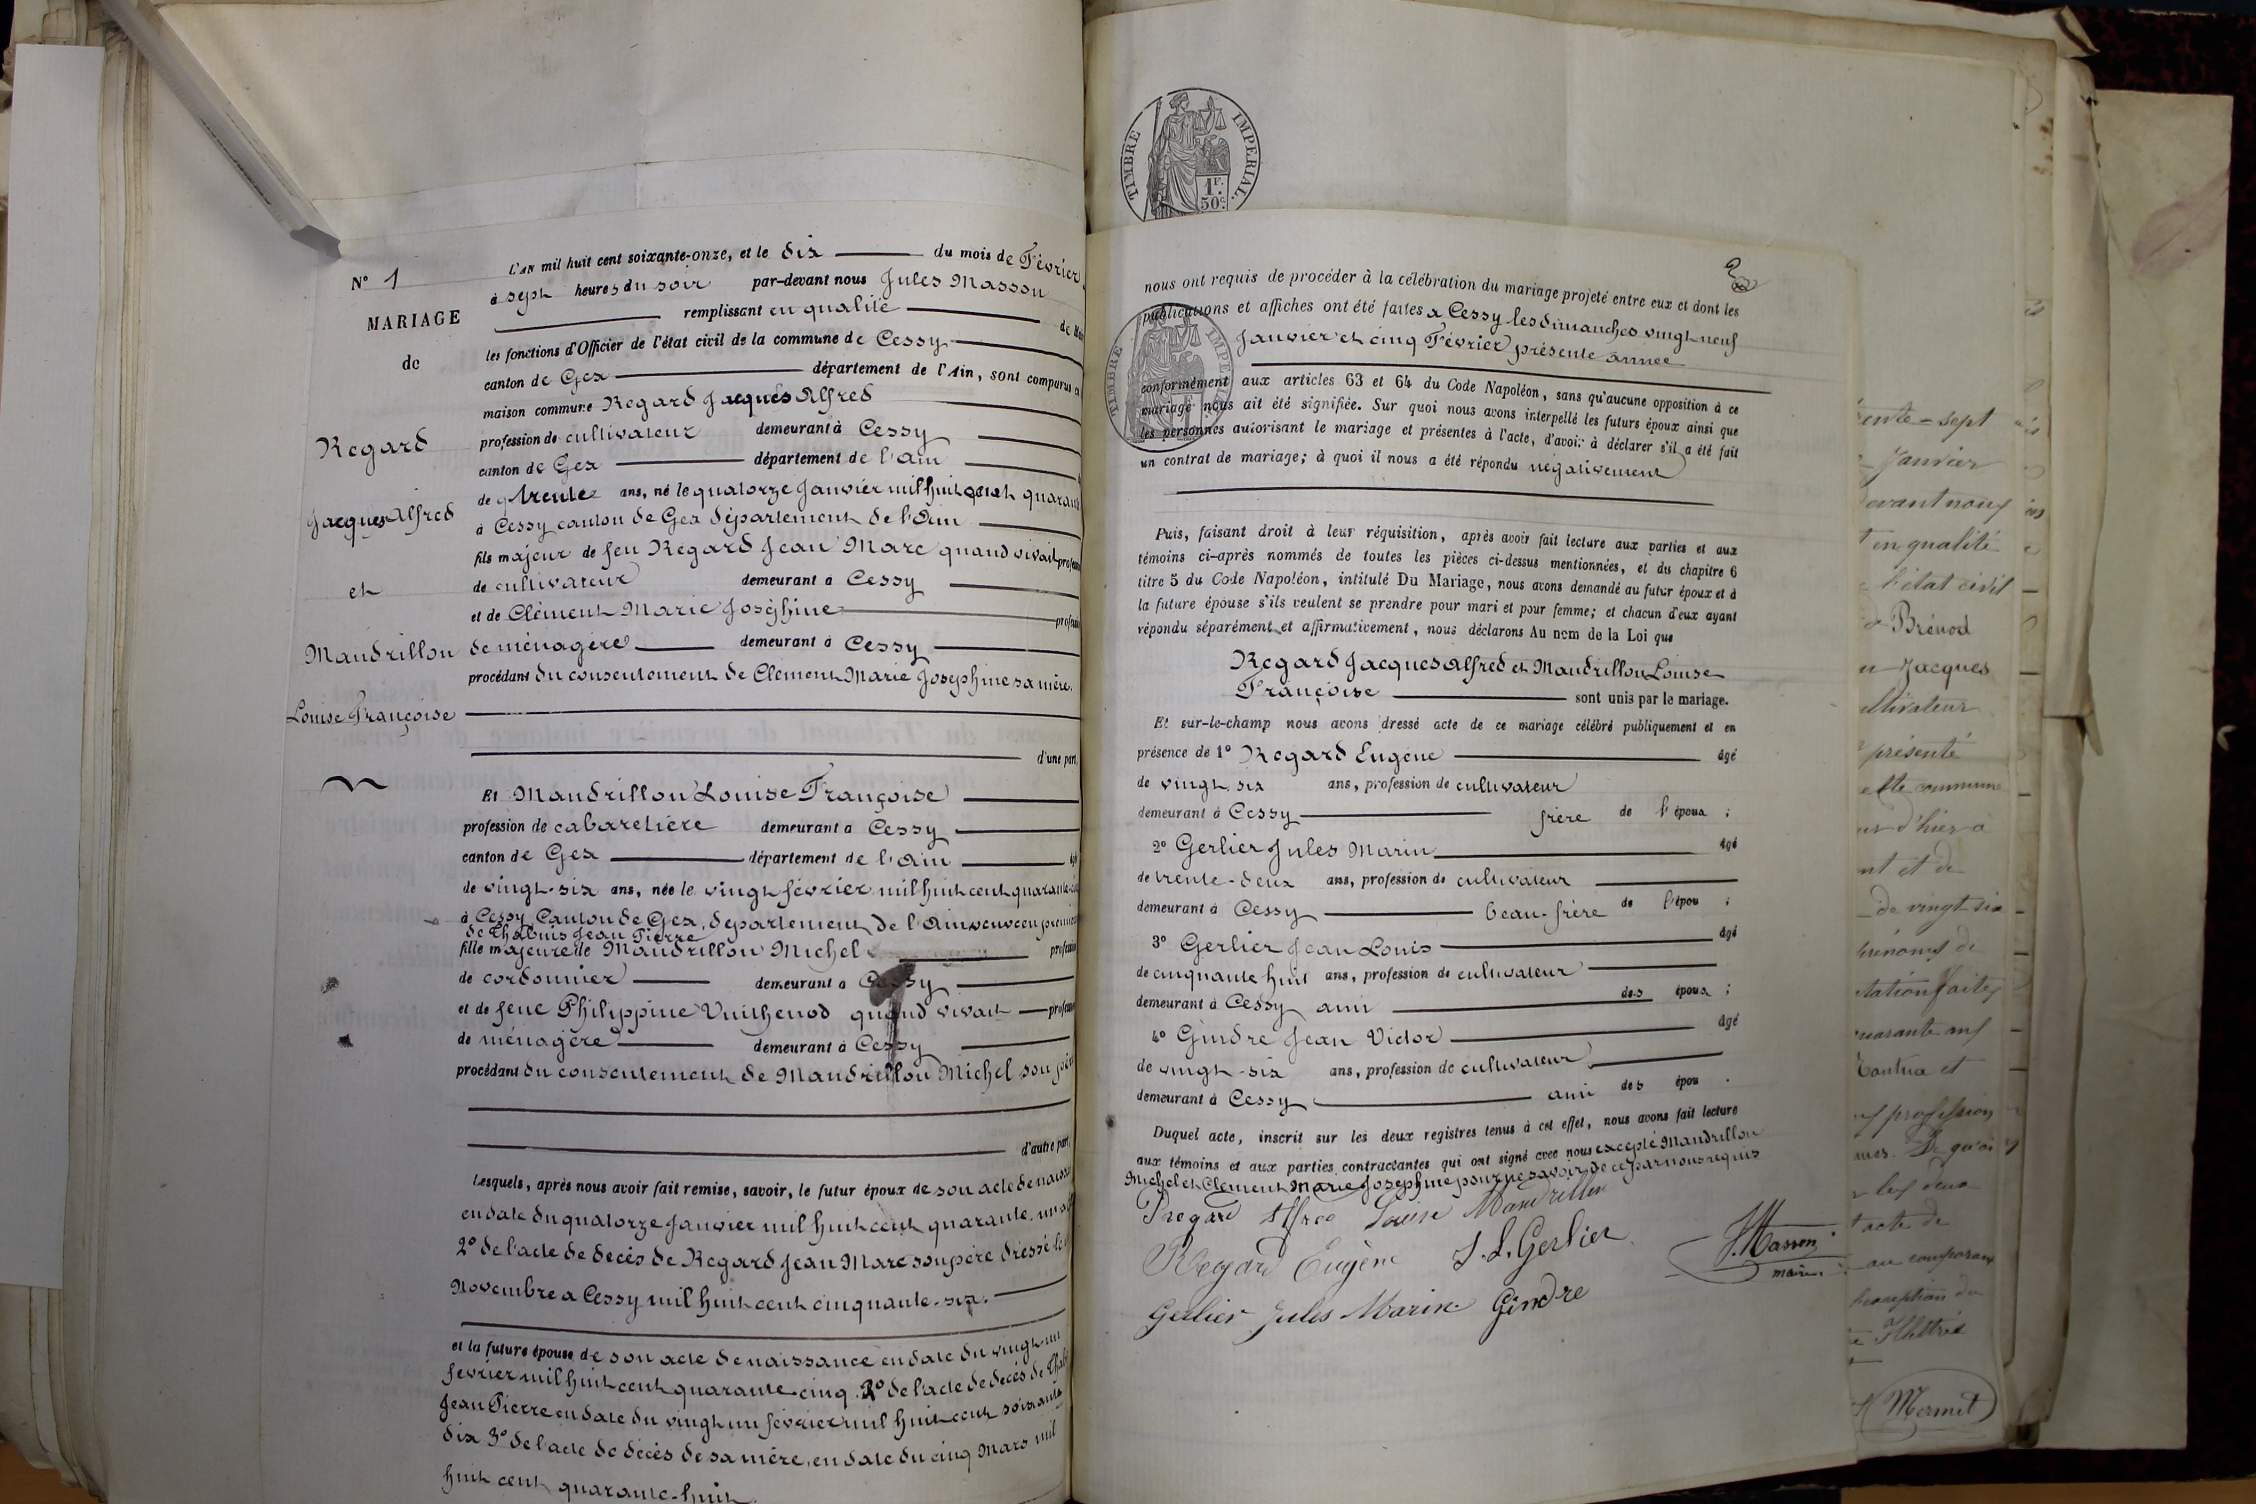 N° 1
MARIAGE
de
Regard
Jacques Alfred
et
Mandrillon
Louise Françoise
L'AN mil huit cent soixante-onze, et le dix du mois de Février
à sept heures du soir par-devant nous Jules Masson
remplissant en qualité de
les fonctions d'Officier de l'état civil de la commune de Cessy
canton de Gex département de l'Ain, sont comparus en
maison commune Regard Jacques Alfred
profession de cultivateur demeurant à Cessy
canton de Gex département de l'ain
de trente ans, né le quatorze Janvier mil huit cent quarante
à Cessy canton de Gex département de l'Ain
fils majeur de feu Regard Jean Marc quand vivait
de cultivateur demeurant à Cessy
et de Clément Marie Joséphine
de ménagère demeurant à Cessy
procédant du consentement de Clément Marie Josephine sa mère.
d'une part,
Et Mandrillon Louise Françoise
profession de cabaretière demeurant à Cessy
canton de Gex département de l'ain
de vingt-six ans, née le vingt février mil huit cent quarante
à Cessy Canton de Gex, departement de l'Ain veuve en
de Thabuis Jean Pierre
fille majeure de Mandrillon Michel
de cordonnier demeurant à Cessy
et de feue Philippine Vuithenod quand vivait
de ménagère demeurant à Cessy
procédant du consentement de Mandrillon Michel son père
d'autre part,
Lesquels, après nous avoir fait remise, savoir, le futur époux de son acte de
en date du quatorze Janvier mil huit cent quarante-un
2° de l'acte de decès de Regard Jean Marc son père dressé le
Novembre a Cessy mil huit cent cinquante-six.
et la future épouse de son acte de naissance en date du vingt-un
février mil huit cent quarante-cinq. 2° de l'acte de decès de
Jean Pierre en date du vingt un février mil huit cent soixante
dix 3° de l'acte de décès de sa mère, en date du cinq Mars mil
huit cent quarante-huit.
TIMBRE IMPERIAL.
1F. 50c.
2
nous ont requis de procéder à la célébration du mariage projeté entre eux et dont les
publications et affiches ont été faites a Cessy les dimanches vingt neuf
Janvier et cinq Février présente année
TIMBRE IMPE
conformément aux articles 63 et 64 du Code Napoléon, sans qu'aucune opposition à ce
mariage nous ait été signifiée. Sur quoi nous avons interpellé les futurs époux ainsi que
les personnes autorisant le mariage et présentes à l'acte, d'avoir à déclarer s'il a été fait
un contrat de mariage; à quoi il nous a été répondu négativement
Puis, faisant droit à leur réquisition, après avoir fait lecture aux parties et aux
témoins ci-après nommés de toutes les pièces ci-dessus mentionnées, et du chapitre 6
titre 5 du Code Napoléon, intitulé Du Mariage, nous avons demandé au futur époux et à
la future épouse s'ils veulent se prendre pour mari et pour femme; et chacun d'eux ayant
répondu séparément et affirmativement, nous déclarons Au nom de la Loi que
Regard Jacques Alfred et Mandrillon Louise
Françoise sont unis par le mariage.
Et sur-le-champ nous avons dressé acte de ce mariage célébré publiquement et en
présence de 1° Regard Eugène âgé
de vingt six ans, profession de cultivateur
demeurant à Cessy frère de l'époux ;
2° Gerlier Jules Marin âgé
de trente-deux ans, profession de cultivateur
demeurant à Cessy beau-frère de l'épou ;
3° Gerlier Jean Louis âgé
de cinquante huit ans, profession de cultivateur
demeurant à Cessy ami des époux ;
4° Gindre Jean Victor âgé
de vingt-six ans, profession de cultivateur
demeurant à Cessy ami des épou .
Duquel acte, inscrit sur les deux registres tenus à cet effet, nous avons fait lecture
aux témoins et aux parties contractantes qui ont signé avec nous excepté Mandrillon
Michel et Clément Marie Joséphine pour ne savoir de ce par nous requis
Regard Alfred Louise Mandrillon
Regard Eugène J. L. Gerlier
J. Masson
maire
Gerlier Jules Marin Gindre
trente-sept
Janvier
devant nous
en qualité
l'état civil
Brénod
Jacques
présenté
d'hier à
nt et de
de vingt six
prénoms de
quarante ans
profession
les deux
acte de
Mermet